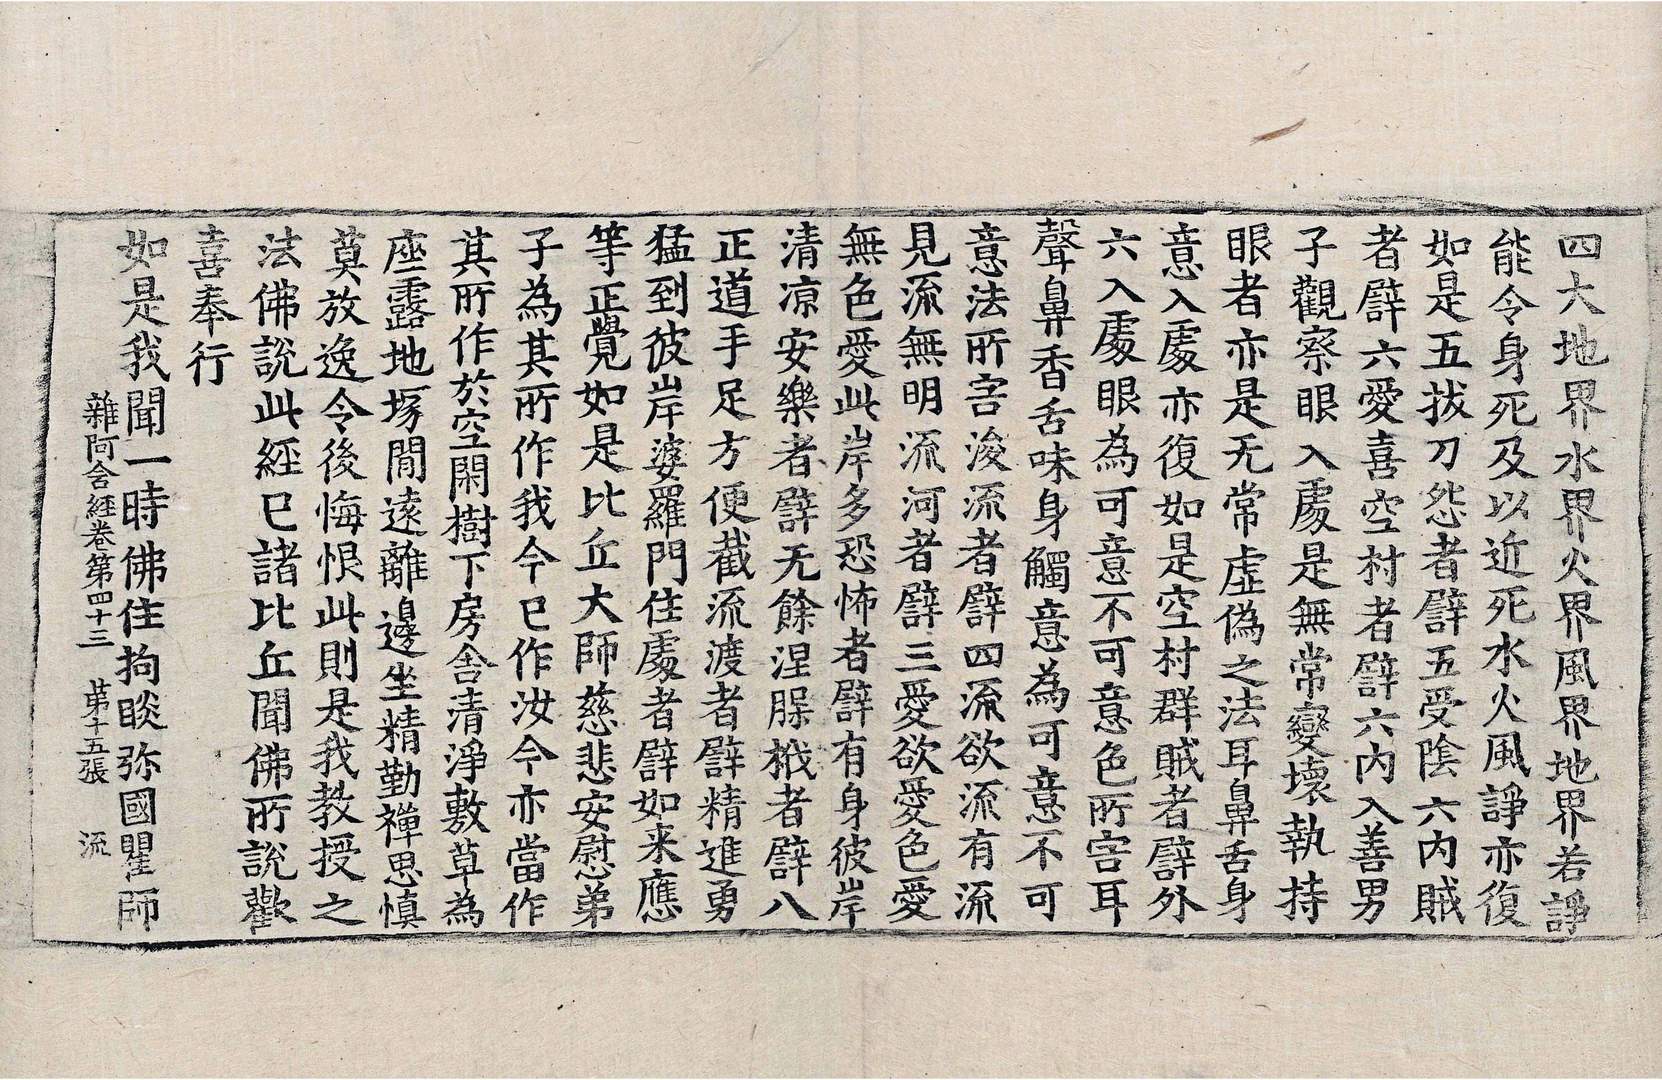 四大地界水界火界風界地界若諍
能令身死及以近死水火風諍亦復
如是五拔刀怨者譬五受陰六内賊
者譬六愛喜空村者譬六内入善男
子觀察眼入處是無常變壞執持
眼者亦是无常虛偽之法耳鼻舌身
意入處亦復如是空村群賊者譬外
六入處眼為可意不可意色所害耳
聲鼻香舌味身觸意為可意不可
意法所害浚流者譬四流欲流有流
見流無明流河者譬三愛欲愛色愛
無色愛此岸多恐怖者譬有身彼岸
清涼安樂者譬无餘涅槃栰者譬八
正道手足方便截流渡者譬精進勇
猛到彼岸婆羅門住處者譬如来應
等正覺如是比丘大師慈悲安慰弟
子為其所作我今已作汝今亦當作
其所作於空閑樹下房舍清淨敷草為
座露地塚間遠離邊坐精勤禪思慎
莫放逸令後悔恨此則是我教授之
法佛說此經已諸比丘聞佛所說歡
喜奉行
如是我聞一時佛住拘睒弥國瞿師
雜阿含經卷第四十三 第十五張 流